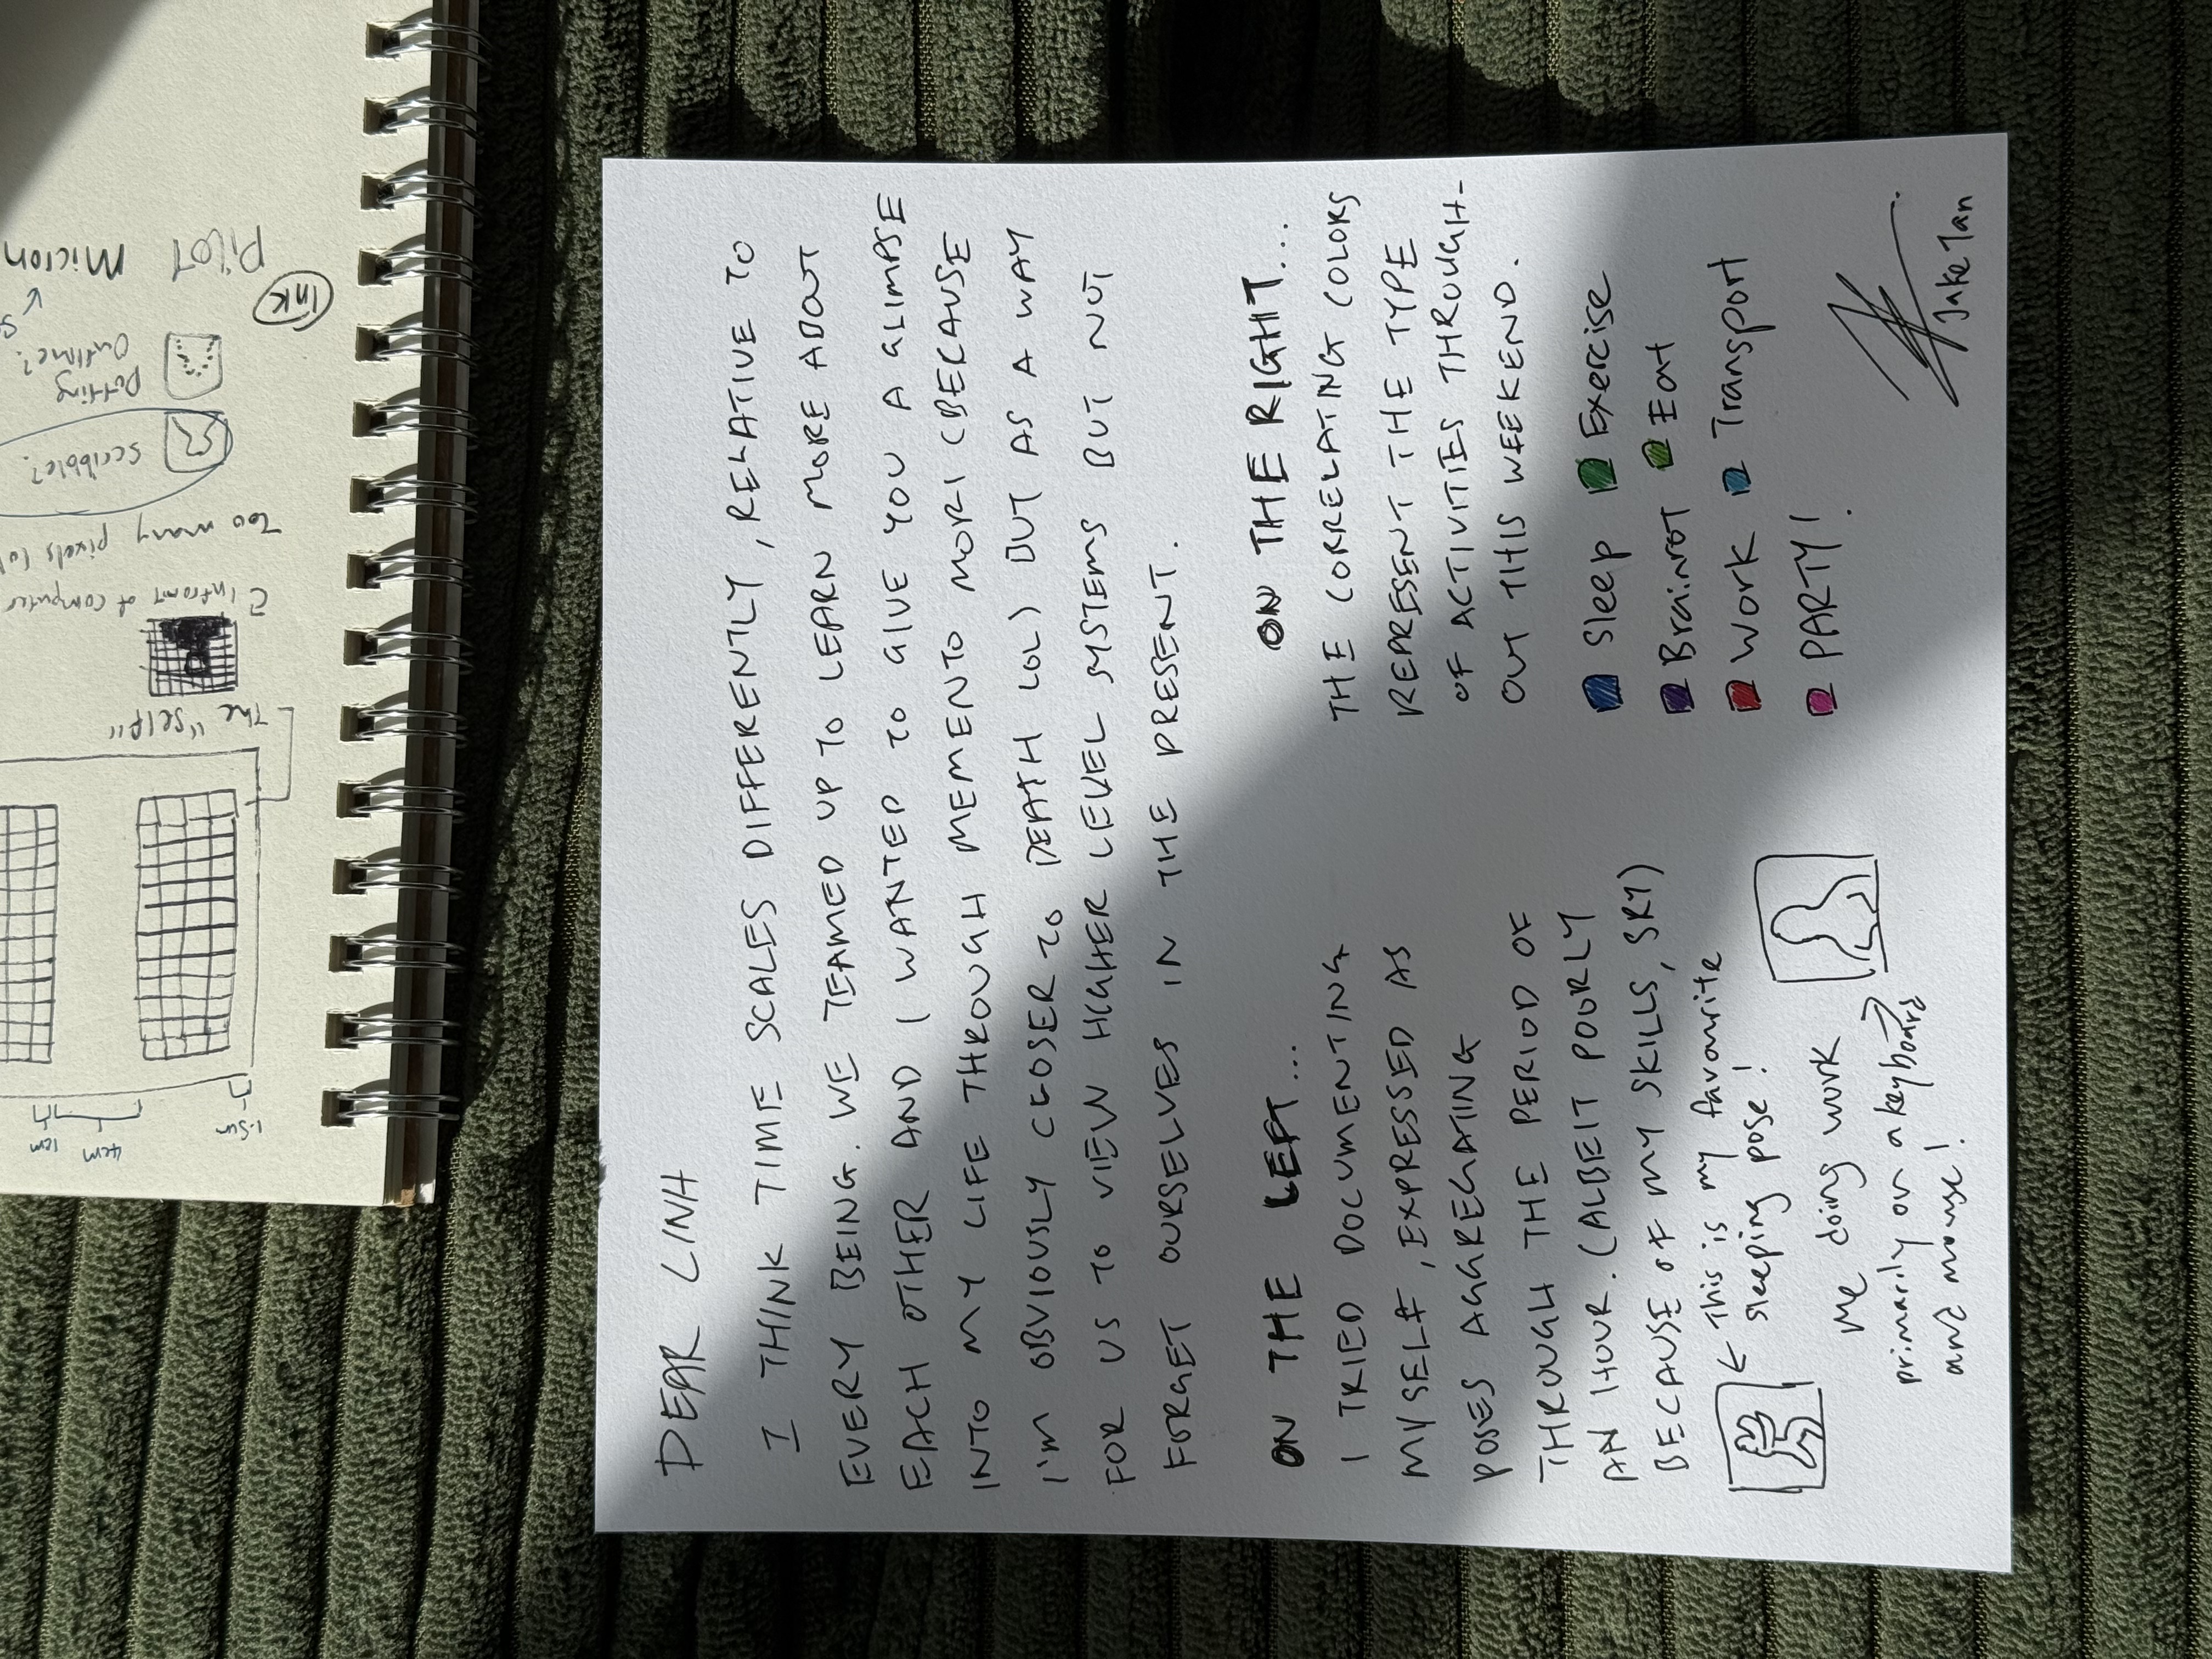 1cm
4cm
1.5cm
The "self"
infront of computer
Too many pixels lol
Scribble?
Dotting
Outline?
Ink
Pilot Micron
DEAR LINH
I THINK TIME SCALES DIFFERENTLY, RELATIVE TO
EVERY BEING. WE TEAMED UP TO LEARN MORE ABOUT
EACH OTHER AND I WANTED TO GIVE YOU A GLIMPSE
INTO MY LIFE THROUGH MEMENTO MORI (BECAUSE
I'M OBVIOUSLY CLOSER TO DEATH LOL) BUT AS A WAY
FOR US TO VIEW HIGHER LEVEL SYSTEMS BUT NOT
FORGET OURSELVES IN THE PRESENT.
ON THE LEFT...
I TRIED DOCUMENTING
MYSELF, EXPRESSED AS
POSES AGGREGATING
THROUGH THE PERIOD OF
AN HOUR. (ALBEIT POORLY
BECAUSE OF MY SKILLS, SRY)
← This is my favourite
sleeping pose!
Me doing work
primarily on a keyboard
and mouse!
ON THE RIGHT...
THE CORRELATING COLORS
REPRESENT THE TYPE
OF ACTIVITIES THROUGH-
OUT THIS WEEKEND.
Sleep Exercise
Brainrot Eat
Work Transport
PARTY!
Jake Tan